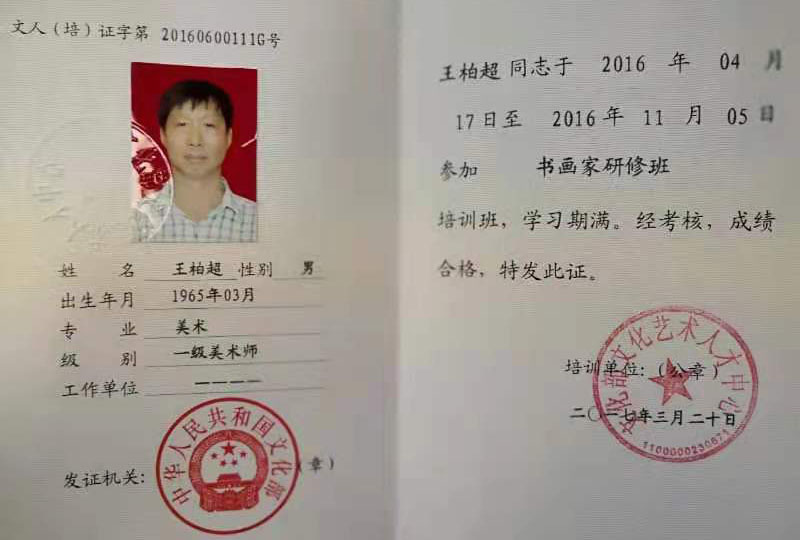 文人（培）证字第 20160600111G号
姓 名 王柏超 性别 男
出生年月 1965年03月
专 业 美术
级 别 一级美术师
工作单位 一一一一
发证机关： （章）
中华人民共和国文化部
王柏超 同志于 2016 年 04 月
17日至 2016年 11 月 05日
参加 书画家研修班
培训班，学习期满。经考核，成绩
合格，特发此证。
培训单位：（公章）
二〇一七年三月二十日
文化部文化艺术人才中心
1100000230671